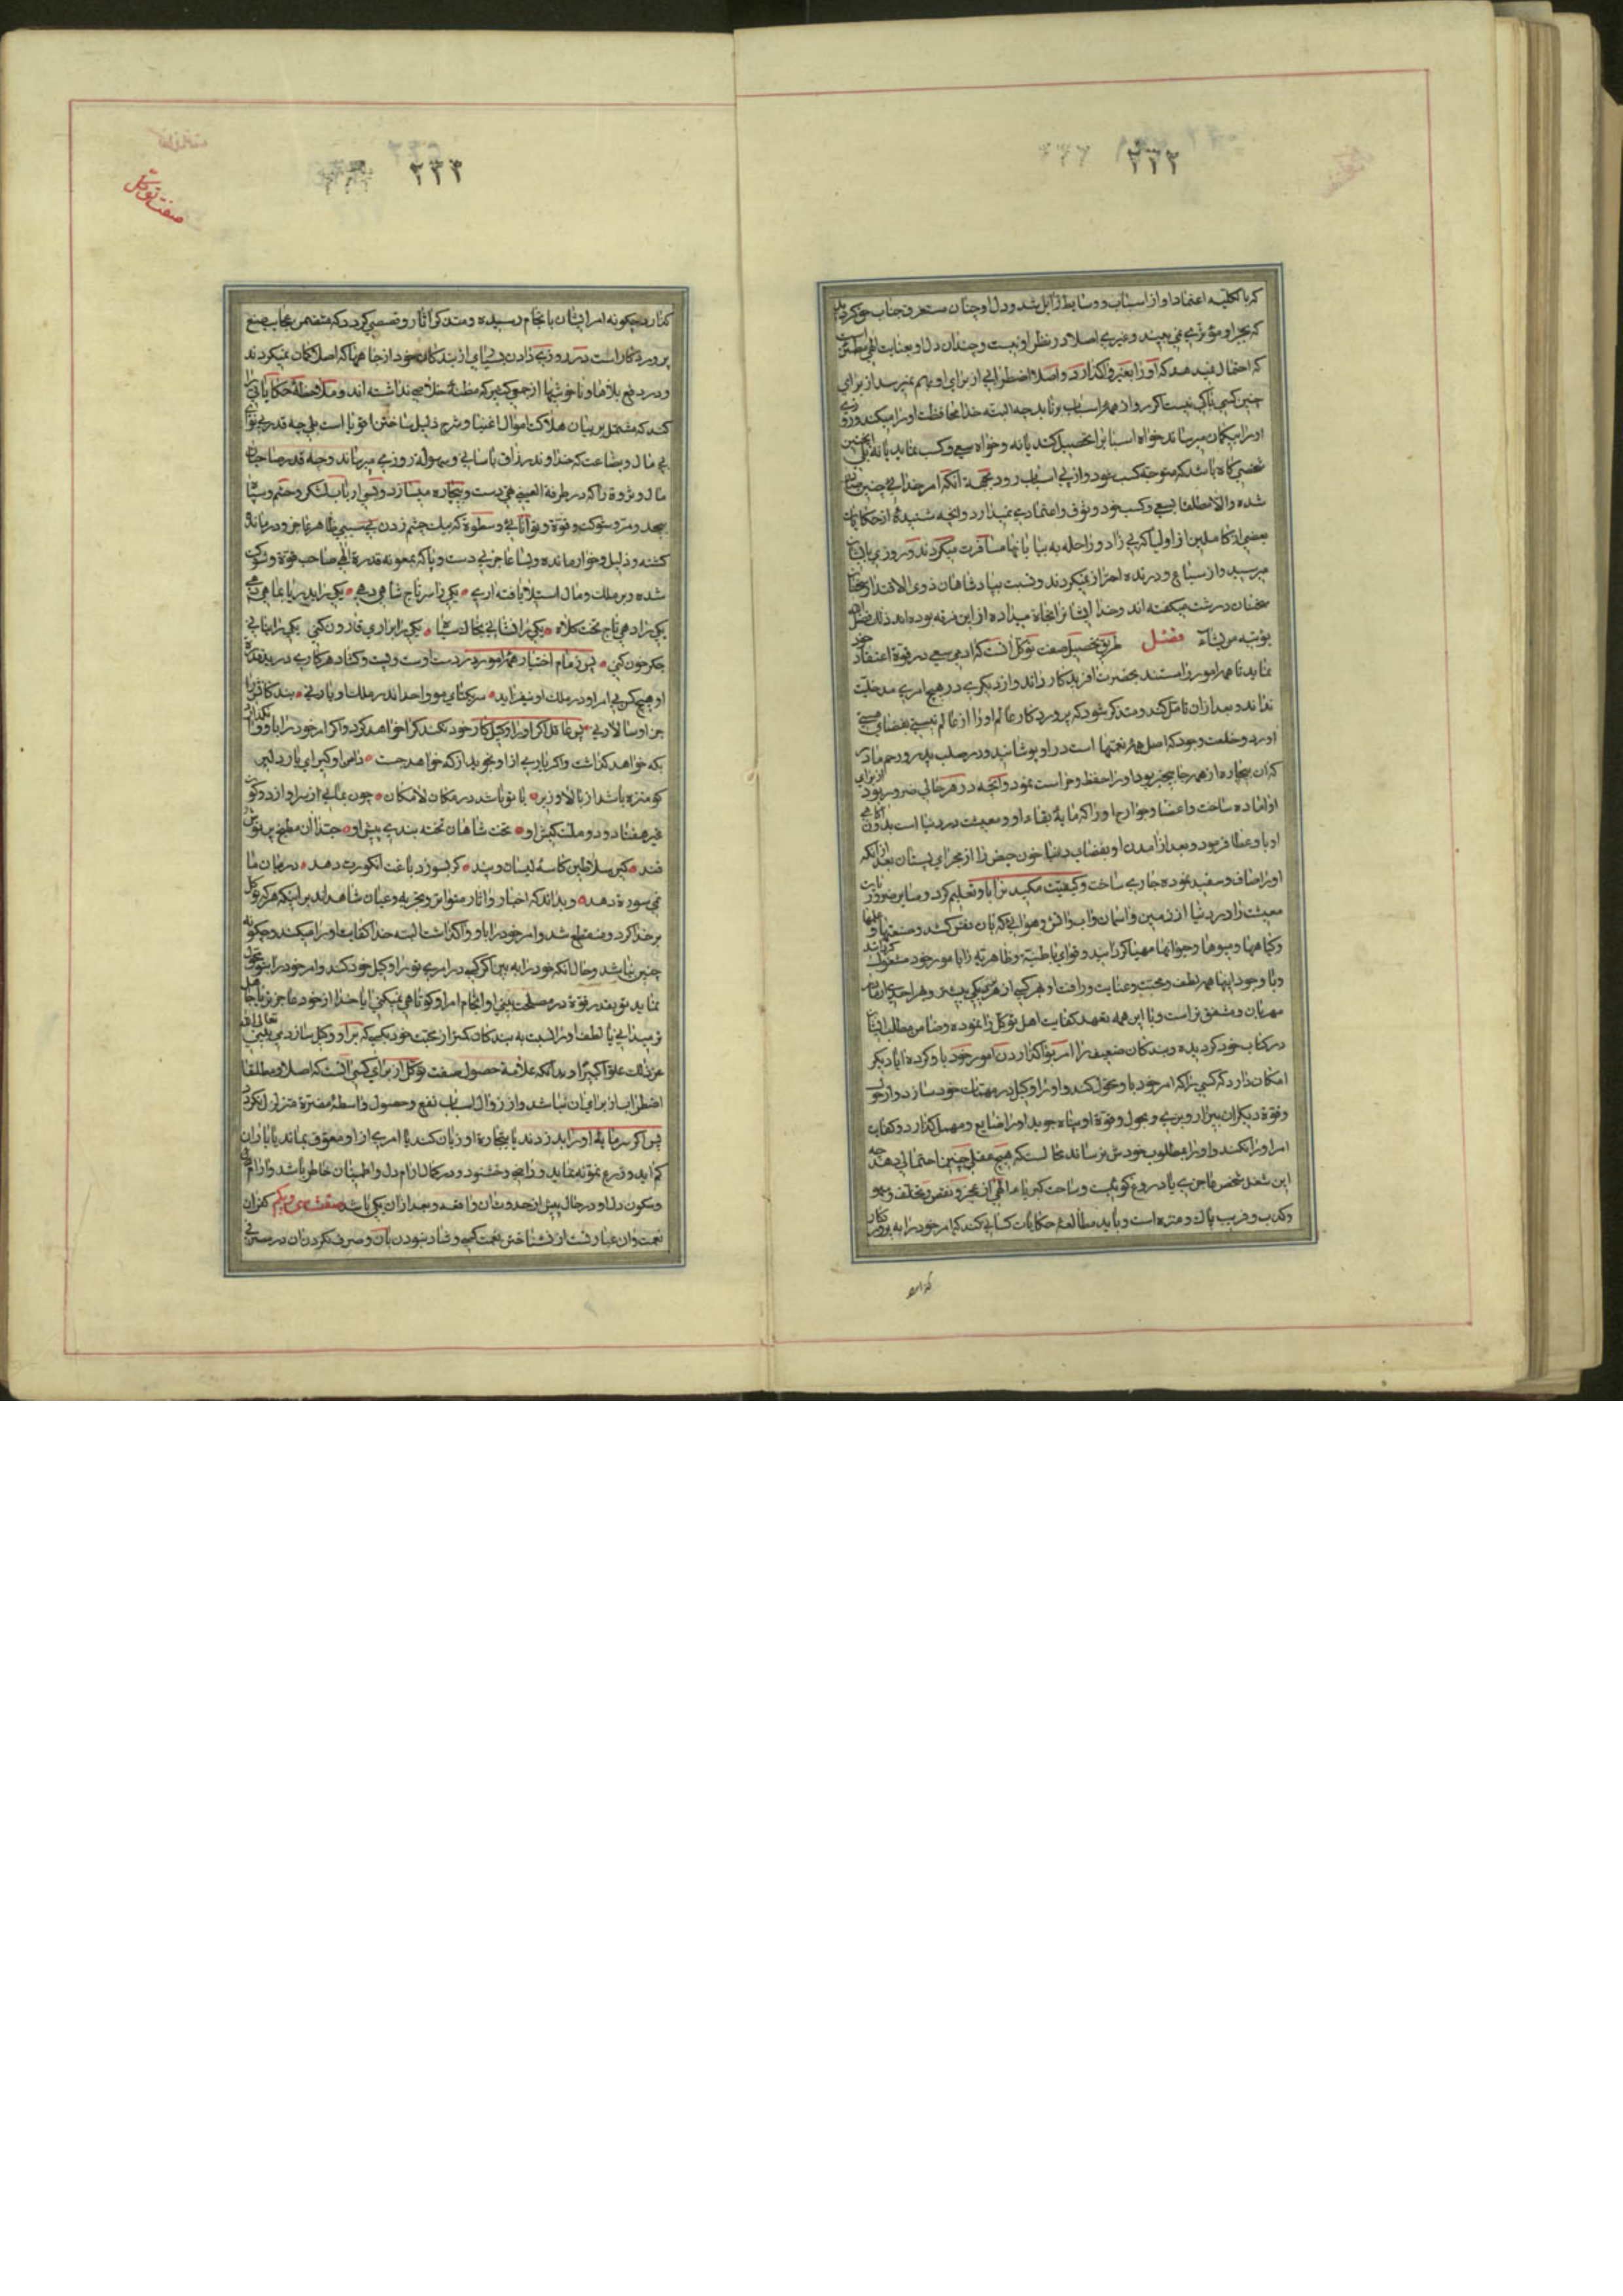 ۲۳۲
که بالکلیه اعتماد او از اسباب و وسایط زایل شد و دل او چنان مستغرق جناب حق گردید
که بجز او مؤثری نمی بیند و غیری اصلا در نظر او نیست و چندان دل او بعنایت الهی مطمئن است
که احتمال نمیدهد که او را بغیر واگذارد و اصلا اضطرابی از برای او بهم نمیرسد از برای
چنین کسی باکی نیست اگر رو از همه اسباب برتابد چه البته خدا محافظت او را میکند و روزی
او را بیگمان میرساند خواه اسباب را تحصیل کند یا نه و خواه سعی و کسب نماید یا نه بلی چنین
شخصی گاه باشد که متوجه کسب خود و از پی اسباب رود بجهة آنکه امر خدائی چنین
شده والا مطلقا بسعی و کسب خود وثوق و اعتمادی نمیدارد و آنچه شنیده از حکایات
بعضی از کاملین از اولیا که بی زاد و راحله به بیابانها مسافرت میکردند و روزی بایشان
میرسید و از سباع و درنده احتراز نمیکردند و نسبت بپادشاهان ذوی الاقتدار سخنان
سخنان درشت میگفته اند و خدا ایشانرا نجاة میداده از این فرقه بوده اند ذلک فضل الله
یؤتیه من یشآء فصل طریق تحصیل صفت توکل آنست که ادمی سعی در قوة اعتقاد خود
نماید تا همه امور را مستند بحضرت افریدگار داند و از دیگری در هیچ امری مدخلیت
نداند و بعد از ان تامل کند و متذکر شود که پروردگار عالم او را از عالم نیستی بفضای هستی
آورد و خلعت وجود که اصل همه نعمتها است در او پوشانید و در صلب پدر و رحم مادر
که آن بیچاره از همه جا بیخبر بود او را حفظ و حراست نمود و آنچه در هر حالی ضرور بود از برای
او اماده ساخت و اعضا و جوارح او را که مایهٔ بقاء او و معیشت در دنیا است بدون آگاهی
او باو عطا فرمود و بعد از امدن او بفضای دنیا خون حیض را از مجرای پستان بعد از آنکه
او را صاف و سفید نموده جاری ساخت و کیفیت مکیدن را باو تعلیم کرد و سایر ضروریات
معیشت را در دنیا از زمین و اسمان و اب و اتش و هوائی که بان نفس کشد و صنعتها و علمها
و گیاهها و میوها و حیوانها مهیا گردانید و قوای باطنیه و ظاهریه را بامور خود مشغول گردانید
و با وجود اینها همه لطف و محبت و عنایت و رافت او بهر کسی از هر نیکی بیشتر و بهر احدی از مادر
مهربان و مشفق تر است و با این همه تعهد کفایت اهل توکل را نموده و ضامن مطلب ایشان
در کتاب خود گردیده و بندگان ضعیف را امر بواگذاردن امور خود باو کرده ایا دیگر
امکان دارد که کسی را که امر خود باو محول کند و او را وکیل در مهمات خود سازد و از حول
و قوة دیگران بیزار و بری و بحول و قوة او پناه جوید او را ضایع و مهمل گذارد و کفایت
امر او را نکند و او را بمطلوب خودش نرساند محالست که هیچ عقلی چنین احتمالی دهد چه
این شغل شخص عاجزی یا دروغ گوئیست و ساحت کبریا الهی از عجز و نقص و تخلف و سهو
و کذب و فریب پاک و منزه است و باید مطالعهٔ حکایات کسانی کند که امر خود را به پروردگار
گذارد
۲۳۳
صفت توکل
گذارد چگونه امر ایشان بانجام رسیده و متذکر اثار و قصصی گردد که متضمن عجایب صنع
پروردگار است در روزی دادن بسیاری از بندگان خود از جاهائی که اصلا گمان نمیکردند
و در دفع بلاها و ناخوشیها از جمع کثیر که مظنهٔ خلاصی نداشته اند و ملاحظهٔ حکایاتی را
کند که مشتمل بر بیان هلاکت اموال اغنیا و شرح ذلیل ساختن اقویا است بلی چه قدر بینوای
بی مال و بضاعت که خداوند رزاق باسانی و سهوله روزی میرساند و چه قدر صاحبان
مال و ثروة را که در طرفة العینی تهی دست و بیچاره میسازد و بسی ارباب لشکر و حشم و سپاه
بیحد و مر و شوکت و قوة و توانائی و سطوة که بیک چشم زدن بی سببی ظاهر عاجز و درمانده
گشته و ذلیل و خوار مانده و بسا عاجز بی دست و پا که بمعونه قدرة الهی صاحب قوة و شوکت
شده و بر ملک و مال استیلا یافته اری یکی را سر تاج شاهی دهی یکی را بدریا بماهی دهی
یکی را دهی تاج و تخت و کلاه یکی را نشانی بخاک سیاه یکی را براری قارون کنی یکی را بنانی
جگر خون کنی پس زمام اختیار همهٔ امور در دست اوست و بست و گشاد هر کاری در ید قدرة
او هیچکس بی امر او در ملک او نیفزاید سر یکتای مو واحد اندر ملک او یار نی بندگانش را
جز او سالار نی پس عاقل اگر او را وکیل کار خود نکند کرا خواهد کرد و اگر امر خود را باو وانگذارد
بکه خواهد گذاشت و اگر یاری از او نجوید از که خواهد جست دامن او گیر ای یار دلیر
کو منزه باشد از بالا و زیر با تو باشد در مکان و لامکان چون بمانی از سرا و از دکان
غیر هفتاد و دو ملت کیش او تخت شاهان تخته بندی پیش او
نمی سوره دهد و بداند که اخبار و اثار متواتر و تجربه و عیان شاهدند بر اینکه هر که توکل
بر خدا کرد و منقطع شد و امر خود را باو واگذاشت البته خدا کفایت او را میکند و چگونه
چنین نباشد و حال آنکه خود را به بین اگر کسی در امری تو را وکیل خود کند و امر خود را بتو محول
نماید تو بقدر قوة در مصلحت بینی او و انجام امر او کوتاهی نمیکنی ایا خدا را از خود عاجزتر یا جاهل
تر میدانی یا لطف او را نسبت به بندگان کمتر از محبت خود بکسی که ترا وکیل سازد می بینی تعالی الله
عن ذلک علوا کبیرا و بدانکه علامة حصول صفت توکل از برای کسی آنست که اصلا و مطلقا
اضطراب از برای ان نباشد و از زوال اسباب نفع و حصول واسطهٔ مضرة متزلزل نگردد
پس اگر سرمایهٔ او را بدزدند یا بتجارة او زیان کند یا امری از او معوق بماند یا باران
کم اید و زرع نمو ننماید راضی و خشنود و در کمال ارام دل و اطمینان خاطر باشد و ارام
و سکون دل او در حال پیش از حدوث ان واقعه و بعد از ان یکی باشد صفت سی و یکم کفران
نعمت و ان عبارت از نشناختن نعمت کسی و شاد نبودن بان و صرف نکردن ان در مصرفی